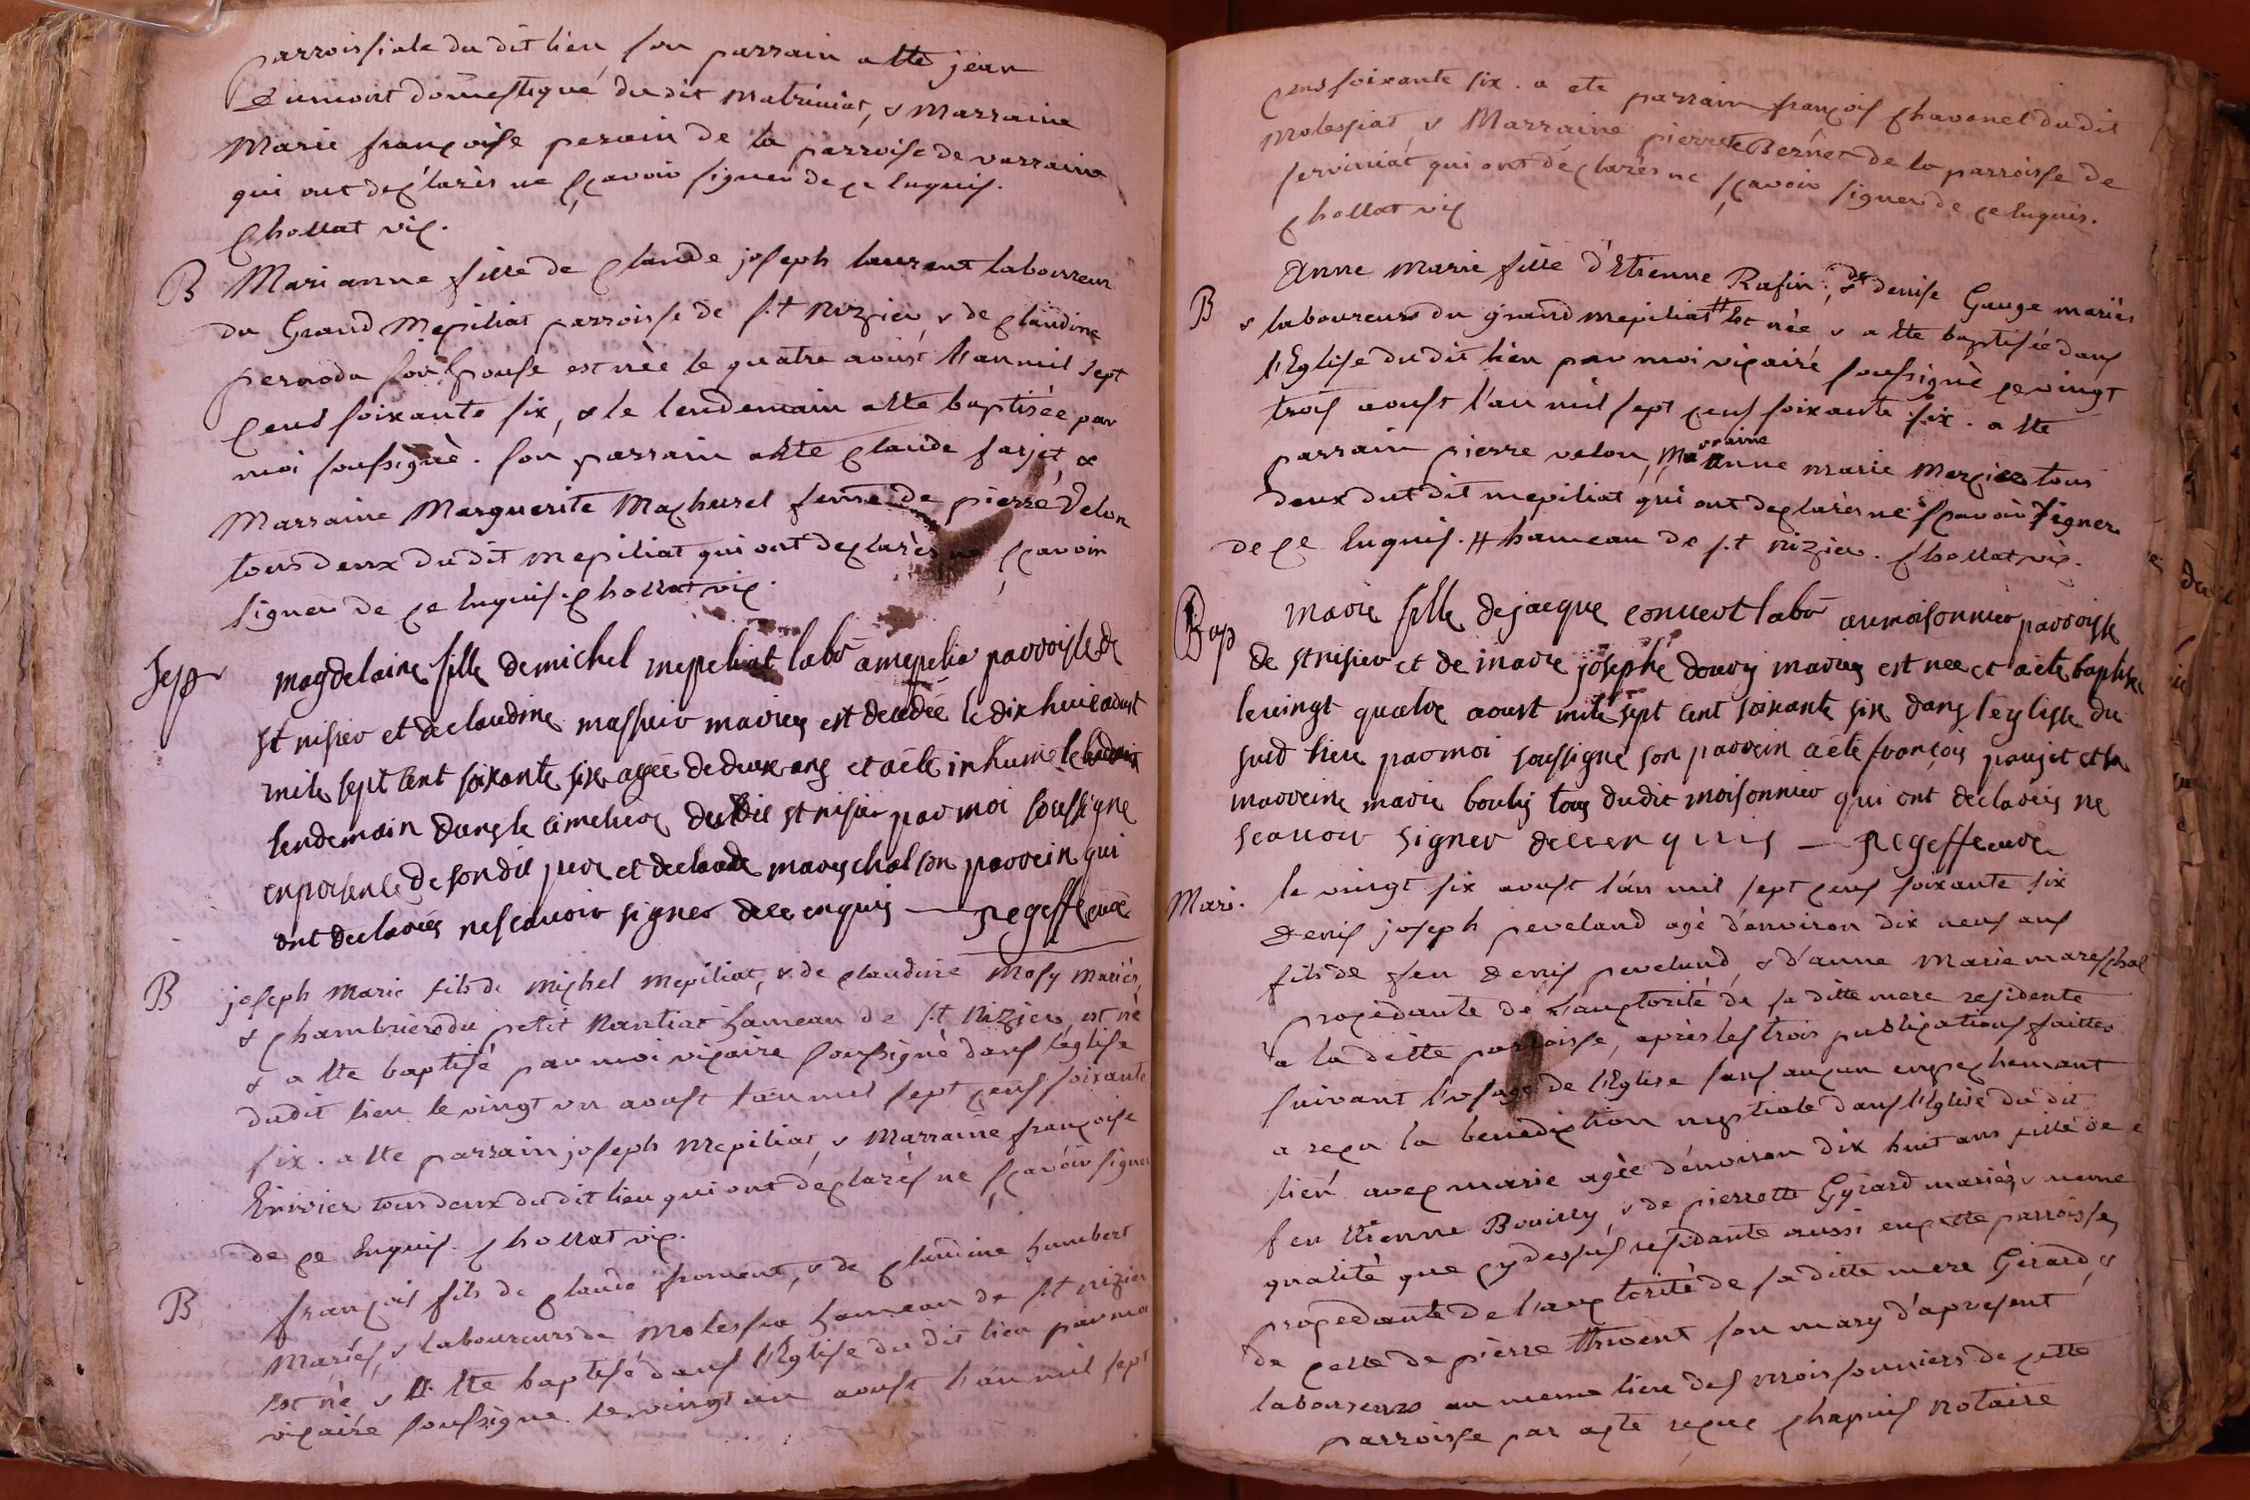 parroissiale du dit lieu, son parrain a ette jean
Dumont domestique du dit Matriniat, & Marraine
Marie françoise perain de la parroise de varraine
qui ont declarés ne sçavoir signer de ce Enquis.
Chossat vic.
B Marianne fille de claude joseph laurent laboureur
du Grand Mepiliat parroisse de s.t Nizier, & de claudine
pernoda son Epouse est née le quatre aoust l'an mil sept
cens soixante six, & le lendemain a ette baptisée par
moi soussigné. son parrain a ette claude farjet, &
Marraine Marguerite Machurel feme de pierre Velon
tous deux du dit mepiliat qui ont declarés ne sçavoir
signer de ce Enquis. Chossat vic.
Sep magdelaine fille de michel mepeliat labr a mepelia parroisse de
st nisier et de claudine massuir mariez est decedée le dix huit aoust
mile sept cent soixante six agée de deux ans et a ete inhumé le
lendemain dans le cimetiere du dit st nisier par moi soussigne
en presence de son dit pere et de claude mareschal son parrein qui
ont declarés ne scavoir signer de ce enquis
B joseph Marie fils de michel Mepiliat, & de claudine Mosy mariés,
& chambriers du petit Nantiat hameau de s.t Nizier est né
& a ette baptisé par moi vicaire soussigné dans l'église
du dit lieu le vingt un aoust l'an mil sept cens soixante
six. a ette parrain joseph Mepiliat, & Marraine françoise
tous deux du dit lieu qui ont déclarés ne sçavoir signer
de ce Enquis. Chossat vic.
B françois fils de claude froment, & de claudine humbert
Mariés, & laboureurs de Molessia hameau de s.t nizier
Est né & a ette baptisé dans l'Eglise du dit lieu par moi
vicaire soussigné le vingt un aoust l'an mil sept
cens soixante six. a ete parrain françois chavanel du dit
Molessiat & Marraine pierrette Bernet de la parroisse de
serviniat qui ont déclarés ne sçavoir signer de ce Enquis.
Chossat vic
Anne Marie fille d'Etienne Rafin, & de denise Gauge mariés
B & laboureurs du grand mepiliat # Est née & a ette baptisée dans
l'Eglise du dit lieu par moi vicaire soussigné ce vingt
trois aoust l'an mil sept cens soixante six. a ette
parrain pierre velon, Marraine anne marie Mercier tous
deux du dit mepiliat qui ont declarés ne sçavoir signer
de ce Enquis. # hameau de s.t nizier. Chossat vic.
Bap marie fille de jacque convert labr au moisonnier parroisse
de st nisier et de marie josephe douvy mariez est nee et a ete baptise
le vingt quatre aoust mile sept cent soixante six dans l'eglisse du
susd lieu par moi soussigne son parrein a ete françois paujet et sa
marreine marie bouly tous du dit moisonnier qui ont declarés ne
scavoir signer de ce enquis
Mari. le vingt six aoust l'an mil sept cens soixante six
Denis joseph peveland agé d'environ dix neuf ans
fils de feu Denis peveland, & d'anne Marie mareschal
procedante de l'auctorité de sa ditte mere residente
a la ditte parroisse, après les trois publications faittes
suivant l'usage de l'Eglise sans aucun empechemant
a reçu la benediction nuptiale dans l'Eglise du dit
lieu avec marie agée d'environ dix huit ans fille de
feu Etienne Bouilly, & de pierrette Gyrard mariés, & meme
qualité que cy dessus residante aussi en cette parroisse,
procedante de l'auctorité de sa ditte mere Girard, &
de celle de pierre thivent son mary d'apresent
laboureurs au meme lieu des moissonniers de cette
parroisse par acte reçue chapuis Notaire